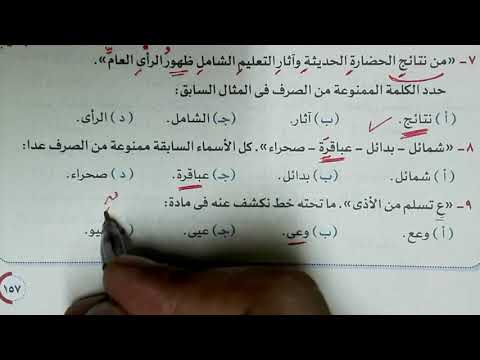 ٧- «من نتائج الحضارةِ الحديثةِ وآثارِ التعليمِ الشاملِ ظهورُ الرأيِ العامِّ».
حدد الكلمة الممنوعة من الصرف فى المثال السابق:
(أ) نتائج. (ب) آثار. (جـ) الشامل. (د) الرأى.
٨- «شمائل - بدائل - عباقرة - صحراء». كل الأسماء السابقة ممنوعة من الصرف عدا:
(أ) شمائل. (ب) بدائل. (جـ) عباقرة. (د) صحراء.
٩- «عِ تسلم من الأذى». ما تحته خط نكشف عنه فى مادة:
(أ) وعع. (ب) وعى. (جـ) عيى.
١٥٧